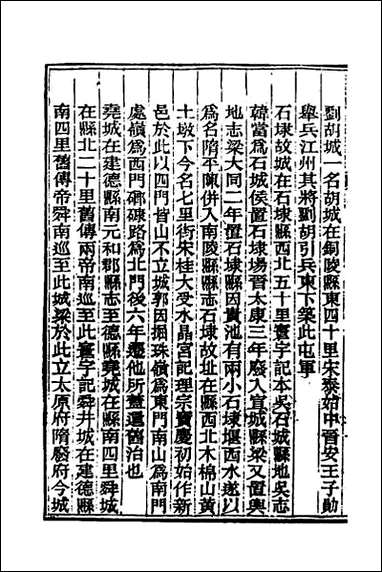 劉胡城一名胡城在銅陵縣東四十里宋泰始中晉安王子勛
舉兵江州其將劉胡引兵東下築此屯軍
石埭故城在石埭縣西北五十里寰宇記本吳石城縣地吳志
韓當爲石城侯置石埭場晉太康三年廢入宣城縣梁又置輿
地志梁大同二年置石埭縣因貴池有兩小石埭堰西水遂以
爲名隋平陳併入南陵縣縣志石埭故址在縣西北木棉山黃
土墩下今名七里街宋桂大受水晶宮記理宗寶慶初始作新
邑於此以四門皆山不立城郭因掘珠嶺爲東門南山爲南門
處嶺爲西門磵碌路爲北門後六年遷他所蓋還舊治也
堯城在建德縣南元和郡縣志至德縣堯城在縣南四里舜城
在縣北二十里舊傳兩帝南巡至此寰宇記舜井城在建德縣
南四里舊傳帝舜南巡至此城梁於此立太原府隋廢府今城